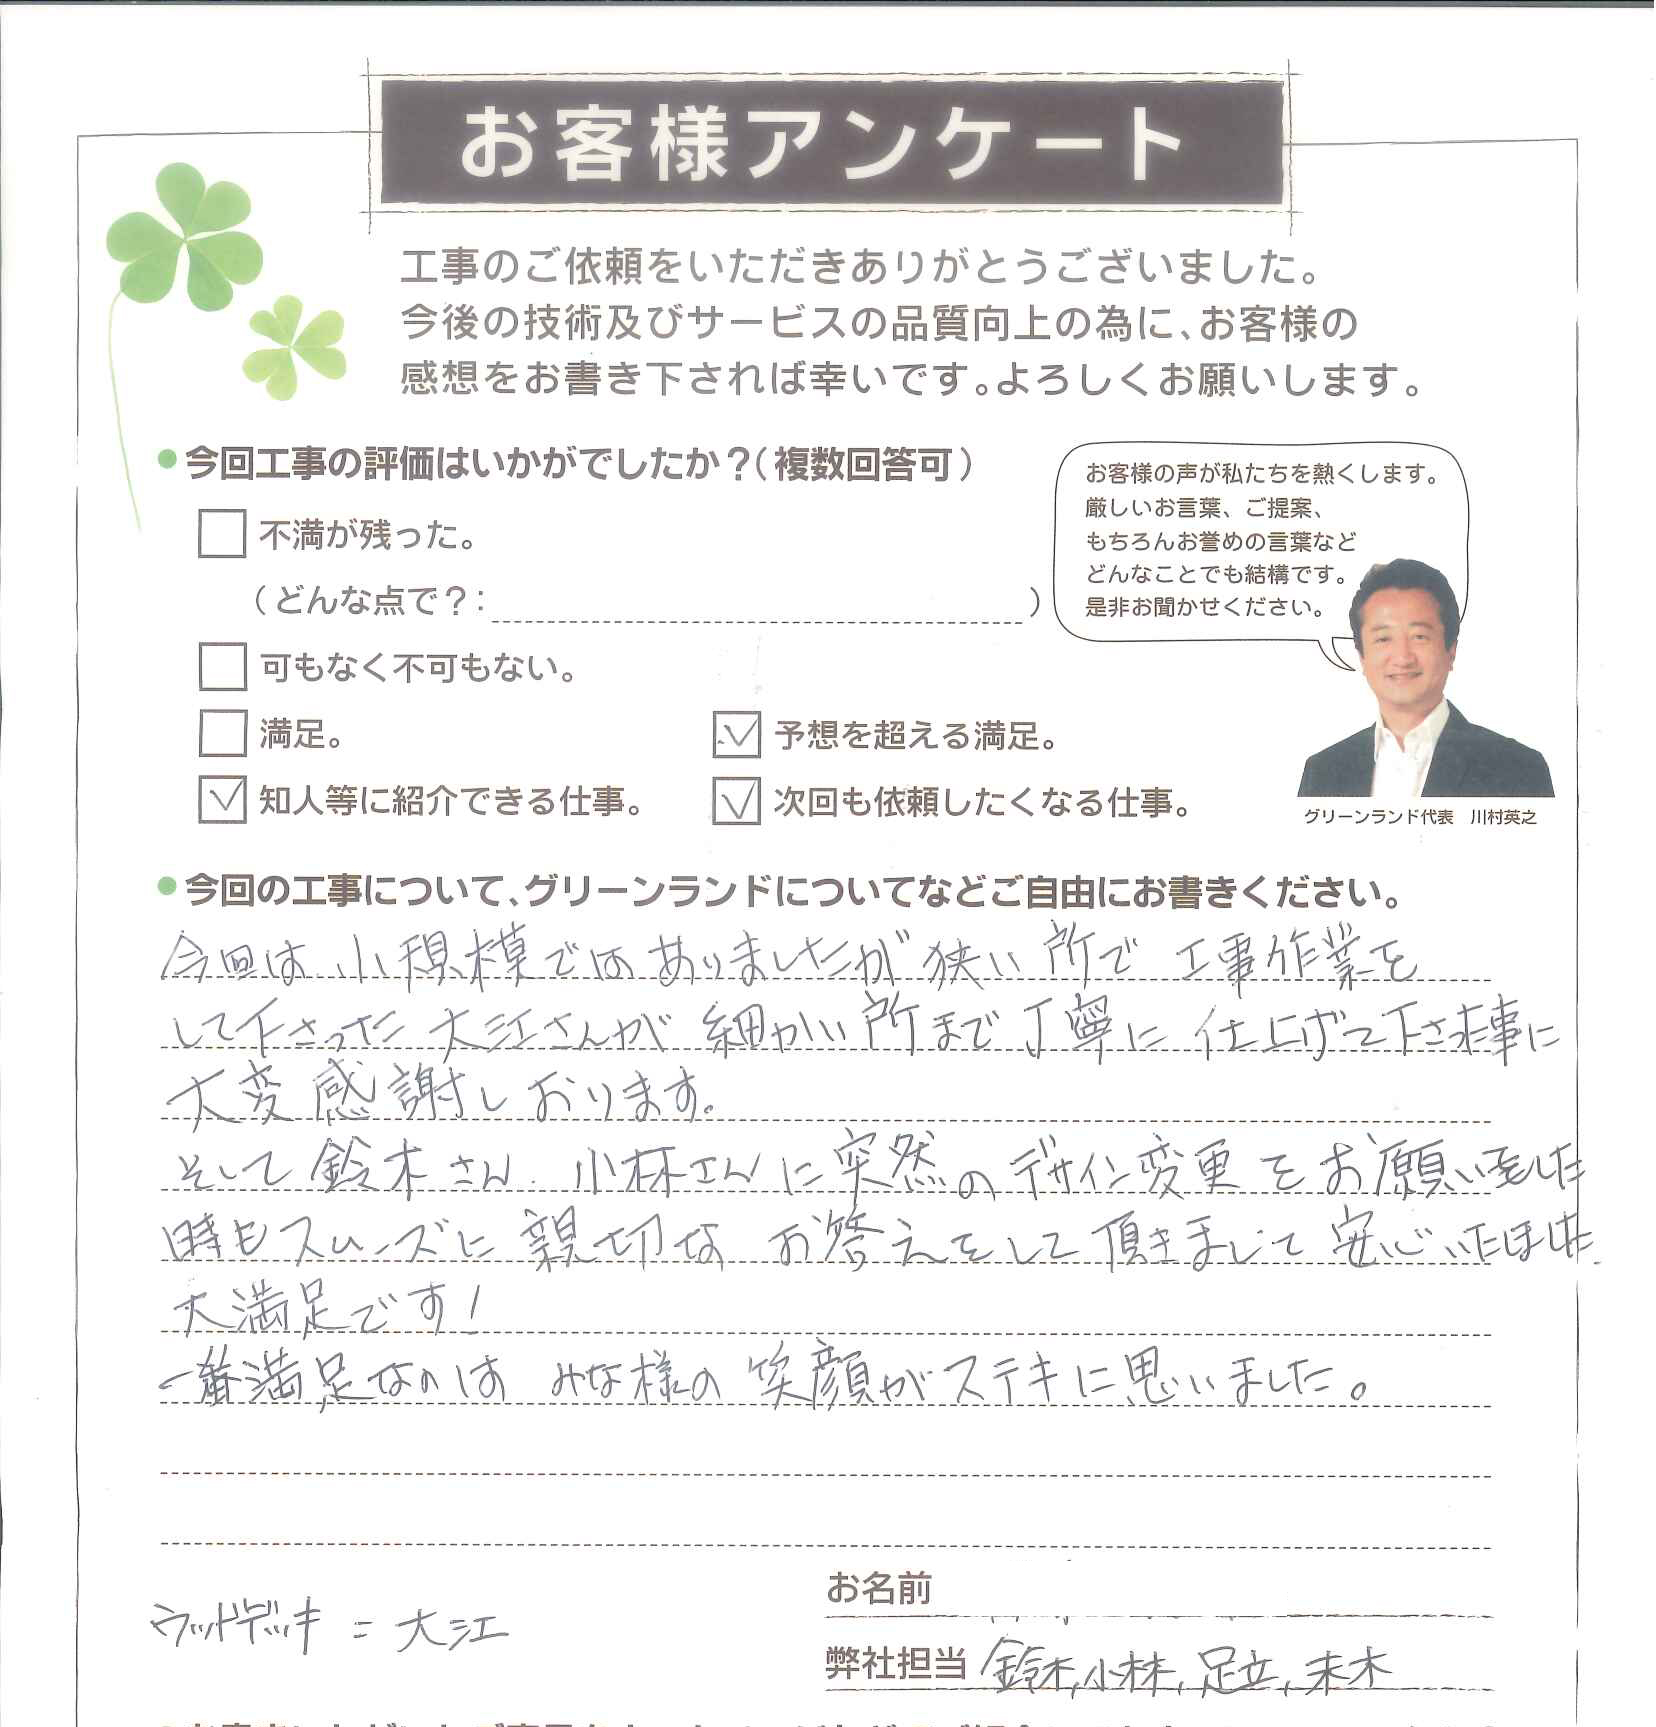 お客様アンケート
工事のご依頼をいただきありがとうございました。
今後の技術及びサービスの品質向上の為に、お客様の
感想をお書き下されば幸いです。よろしくお願いします。
今回工事の評価はいかがでしたか？（複数回答可）
不満が残った。
（どんな点で？： ）
可もなく不可もない。
満足。
予想を超える満足。
知人等に紹介できる仕事。
次回も依頼したくなる仕事。
お客様の声が私たちを熱くします。
厳しいお言葉、ご提案、
もちろんお誉めの言葉など
どんなことでも結構です。
是非お聞かせください。
グリーンランド代表 川村英之
今回の工事について、グリーンランドについてなどご自由にお書きください。
今回は小規模ではありましたが狭い所で工事作業を
して下さった大江さんが細かい所まで丁寧に仕上げて下さ事に
大変感謝しおります。
そして鈴木さん.小林さんに突然のデザイン変更をお願いました
時もスムーズに親切なお答えをして頂きまして安心いたしました
大満足です！
一番満足なのはみな様の笑顔がステキに思いました。
ウッドデッキ＝大江
お名前
弊社担当 鈴木,小林,足立,末木